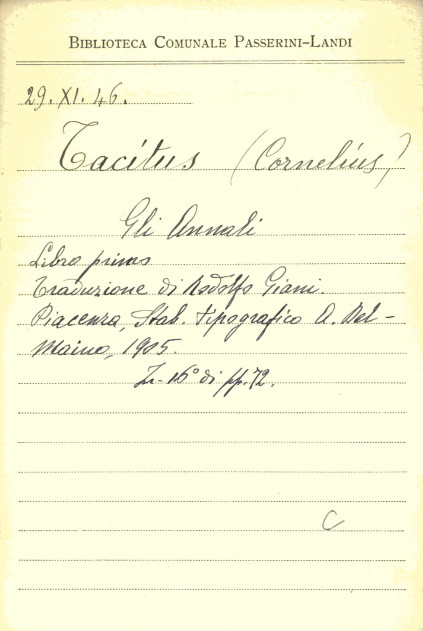 BIBLIOTECA COMUNALE PASSERINI-LANDI
29. XI. 46.
Tacitus (Cornelius)
Gli Annali
Libro primo
Traduzione di Rodolfo Giani.
Piacenza, Stab. tipografico A. Del-
Maino, 1905.
In-16° di pp. 72.
C